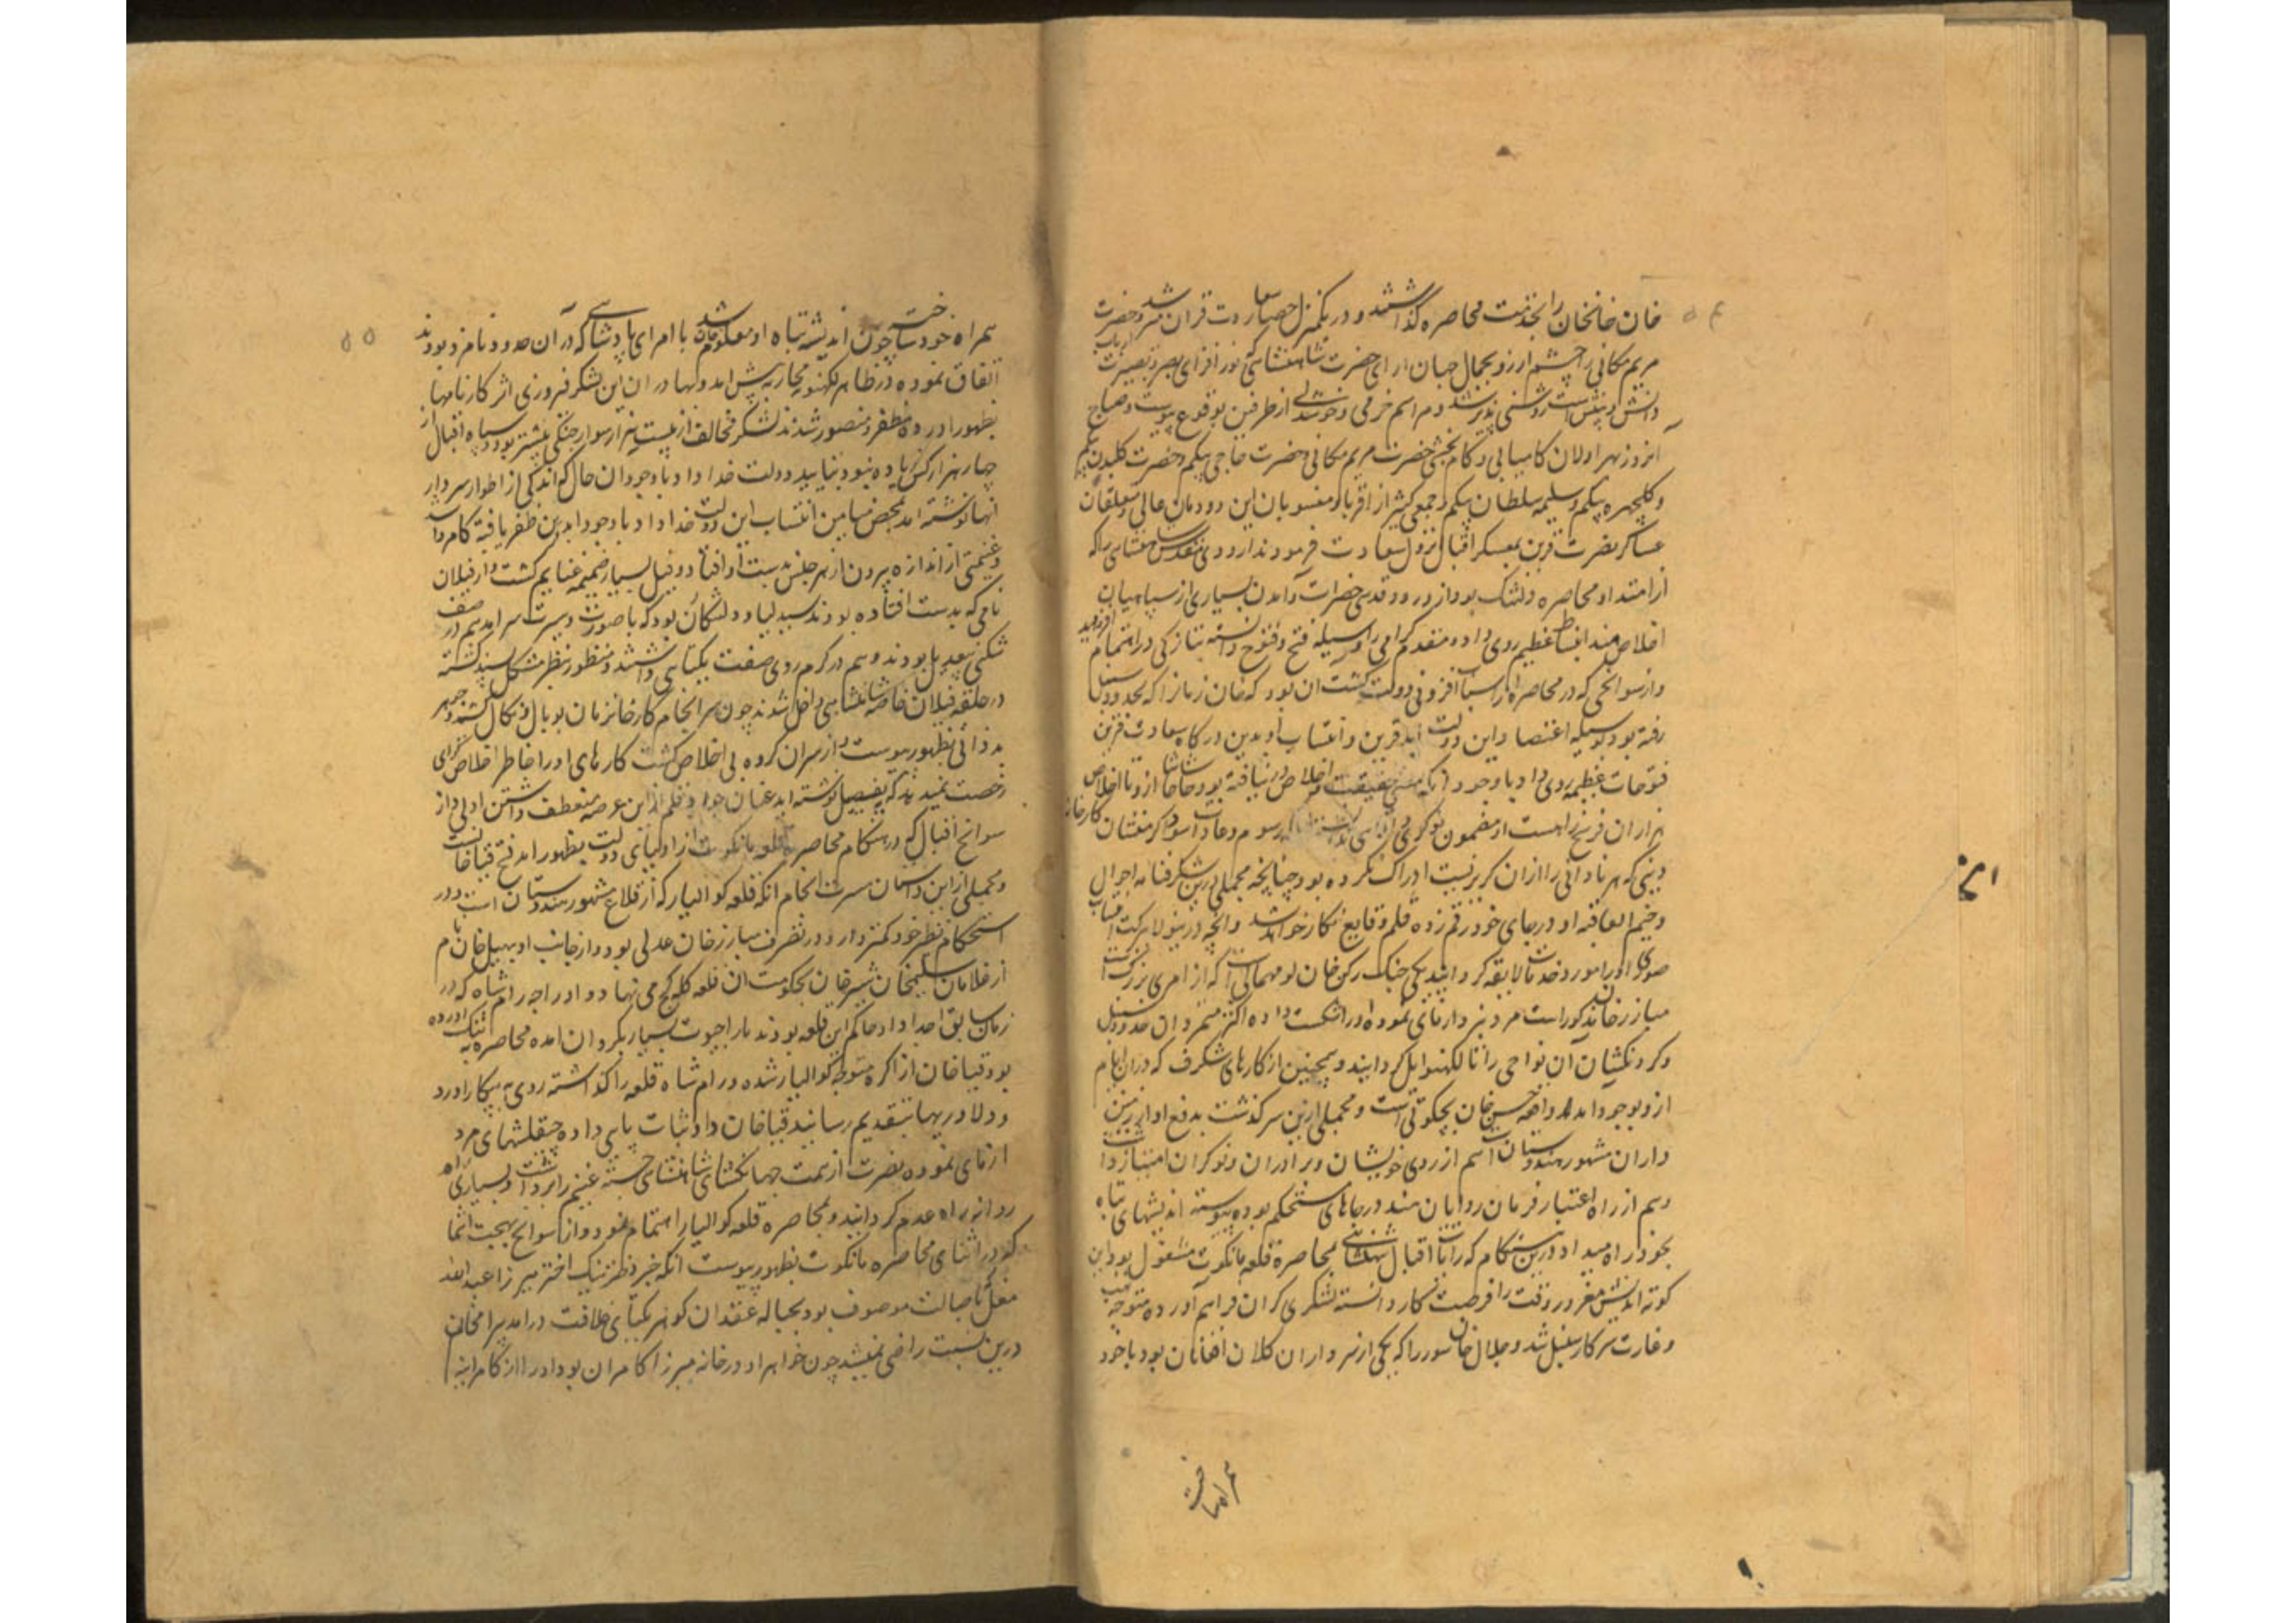 خان خانخانان را بخدمت محاصره گذاشتند و در یکمنزل حصار سعادت قران شد و حضرت
مریم مکانی را چشم ارزو بجمال جهان ارای حضرت شاهنشاهی که نور افزای بصر و بصیرت ارباب
دانش و بینش است روشنی پذیر شد و مراسم خرمی و خوشدلی از طرفین بوقوع پیوست و صباح
انروز بهزاران کامیابی و کام بخشی حضرت مریم مکانی و حضرت حاجی بیکم و حضرت کلبدن بیکم
و کلچهره بیکم و سلیمه سلطان بیکم و جمعی کثیر از اقربا و منسوبان این دودمان عالی و متعلقان
عساکر نصرت قرین بمعسکر اقبال نزول سعادت فرمودند اردوی مقدس شاهنشاهی را که
از امتداد محاصره دلتنک بود از ورود قدسی حضرات و آمدن بسیاری از سپاهیان
اخلاص مند انبساط عظیم روی داد و مقدم کرامی را وسیله فتح و فتوح دانسته بتازکی در اهتمام افزودند
و از سوانحی که در محاصره از اسباب افزونی دولت کشت ان بود که خان زمانرا که بحدود سنبل
رفته بود بوسیله اعتضاد این دولت ابد قرین و انتساب او بدین درکاه سعادت قرین
فتوحات عظیمه روی داد با وجود آنکه معنی حقیقت و اخلاص در نیافته بود حاشا حاشا از وتا اخلاص
هزاران فرسخ راهست او مضمون نوکری و رسوم و عادات سوداکر منشان کارخانه
دنیی که هر نادانی را ازان کریز نیست ادراک نکرده بود چنانچه مجملی ازین شکرفنامه احوال
وخیم العاقبه او در جای خود رقم زده قلم وقایع نکار خواهد شد و انچه درینولا برکت انتساب
صوری او را مورد خدمات لایقه کردانید یکی جنک رکن خان لوحانی است که از امرای بزرک
مبارزخان مذکور است مرد نبرد ارمائی نموده او را شکست داده اکثر متمردان حدود سنبل
و کردنکشان آن نواحی را تا لکهنو ایل کردانید و همچنین از کارهای شکرف که دران ایام
ازو بوجود امد واقعه حسن خان بچکوتی است و مجملی ازین سرکذشت بدفع او از زمین
داران مشهور هندوستان است هم از روی خویشان و برادران و نوکران امتیاز داشت
و هم از راه اعتبار فرمان روایان هند در جاهای مستحکم بوده پیوسته اندیشهای تباه
بخود راه میداد درین هنکام که رایات اقبال شاهنشاهی بمحاصره قلعه مانکوت مشغول بود این
کوته اندیش مغرور وقت را فرصت کار دانسته لشکری کران فراهم آورده متوجه نهب
و غارت سرکار سنبل شد و جلال خان سور را که یکی از سرداران کلان افغانان بود با خود
همراه ساخت
۵۴
همراه خود ساخت چون اندیشه تباه او معلوم شد با امرای پادشاهی که در آن حدود نامزد بودند
اتفاق نموده در ظاهر لکهنو محاربه پیش امد و بهادران این لشکر فیروزی اثر کارنامها
بظهور اورده مظفر و منصور شدند لشکر مخالف از بیست هزار سوار جنکی بیشتر بود و سپاه اقبال از
چهار هزار کس زیاده نبود بتایید دولت خداداد با وجود ان حال که اندکی از اطوار سردار
انها نوشته امد بمحض میامن انتساب این دولت خداداد با وجود ابدین ظفر یافته کامروا شد
و غنیمتی از اندازه بیرون از هر جنس بدست او افتاد و فیل بسیار ضمیمه غنایم کشت و از فیلان
نامی که بدست افتاده بودند سبدلیا و دلشکان بود که با صورت و سیرت سرامد هم در صف
شکنی بیعدیل بودند و هم در کرم روی صفت یکتایی داشتند و منظور نظر مشکل پسند کشته
در حلقه فیلان خاصه شاهنشاهی داخل شدند چون سرانجام کار خانزمان بوبال و نکال کشید و جوهر
بدذاتی بظهور پیوست و از سران کروه بی اخلاص کشت کارهای او را خاطر اخلاص کرای
رخصت نمیدهد که بتفصیل نوشته اید عنان جواد قلم از این عرصه منعطف داشتن اولی و از
سوانح اقبال که در هنکام محاصره قلعه مانکوت از اولیای دولت بظهور امد فتح قیاخانست
و مجملی از این داستان مسرت انجام انکه قلعه کوالیار که از قلاع مشهور هندوستان است و در
استحکام نظیر خود کمتر دارد و در تصرف مبارزخان عدلی بود و از جانب او بهیل خان نام
از غلامان سلیم خان شیرخان بحکومت ان قلعه کله کج می نهاد و او را راجه رامشاه که در
زمان سابق اجداد او حاکم این قلعه بودند با راجپوت بسیار بکرد ان امده محاصره به تنک اورده
بود قیاخان از اکره متوجه کوالیار شده و رام شاه قلعه را کذاشته روی به پیکار اورد
و دلاوریها بتقدیم رسانید قیاخان داد ثبات پای داده چپقلشهای مرد
ازمای نموده نصرت از همت جهانکشای شاهنشاهی جسته غنیم را برداشت و بسیاری را
روانه راه عدم کردانید و بمحاصره قلعه کوالیار اهتمام نمود و از سوانح بهجت انتما
که در اثنای محاصره مانکوت بظهور پیوست انکه خیر دختر نیک اختر میرزا عبدالله
مغل که باصالت موصوف بود بحباله عقد ان کوهر یکتای خلافت درامد بیرامخان
درین نسبت راضی نمیشد چون خواهر او در خانه میرزا کامران بود او را از کامرانیه
۵۵